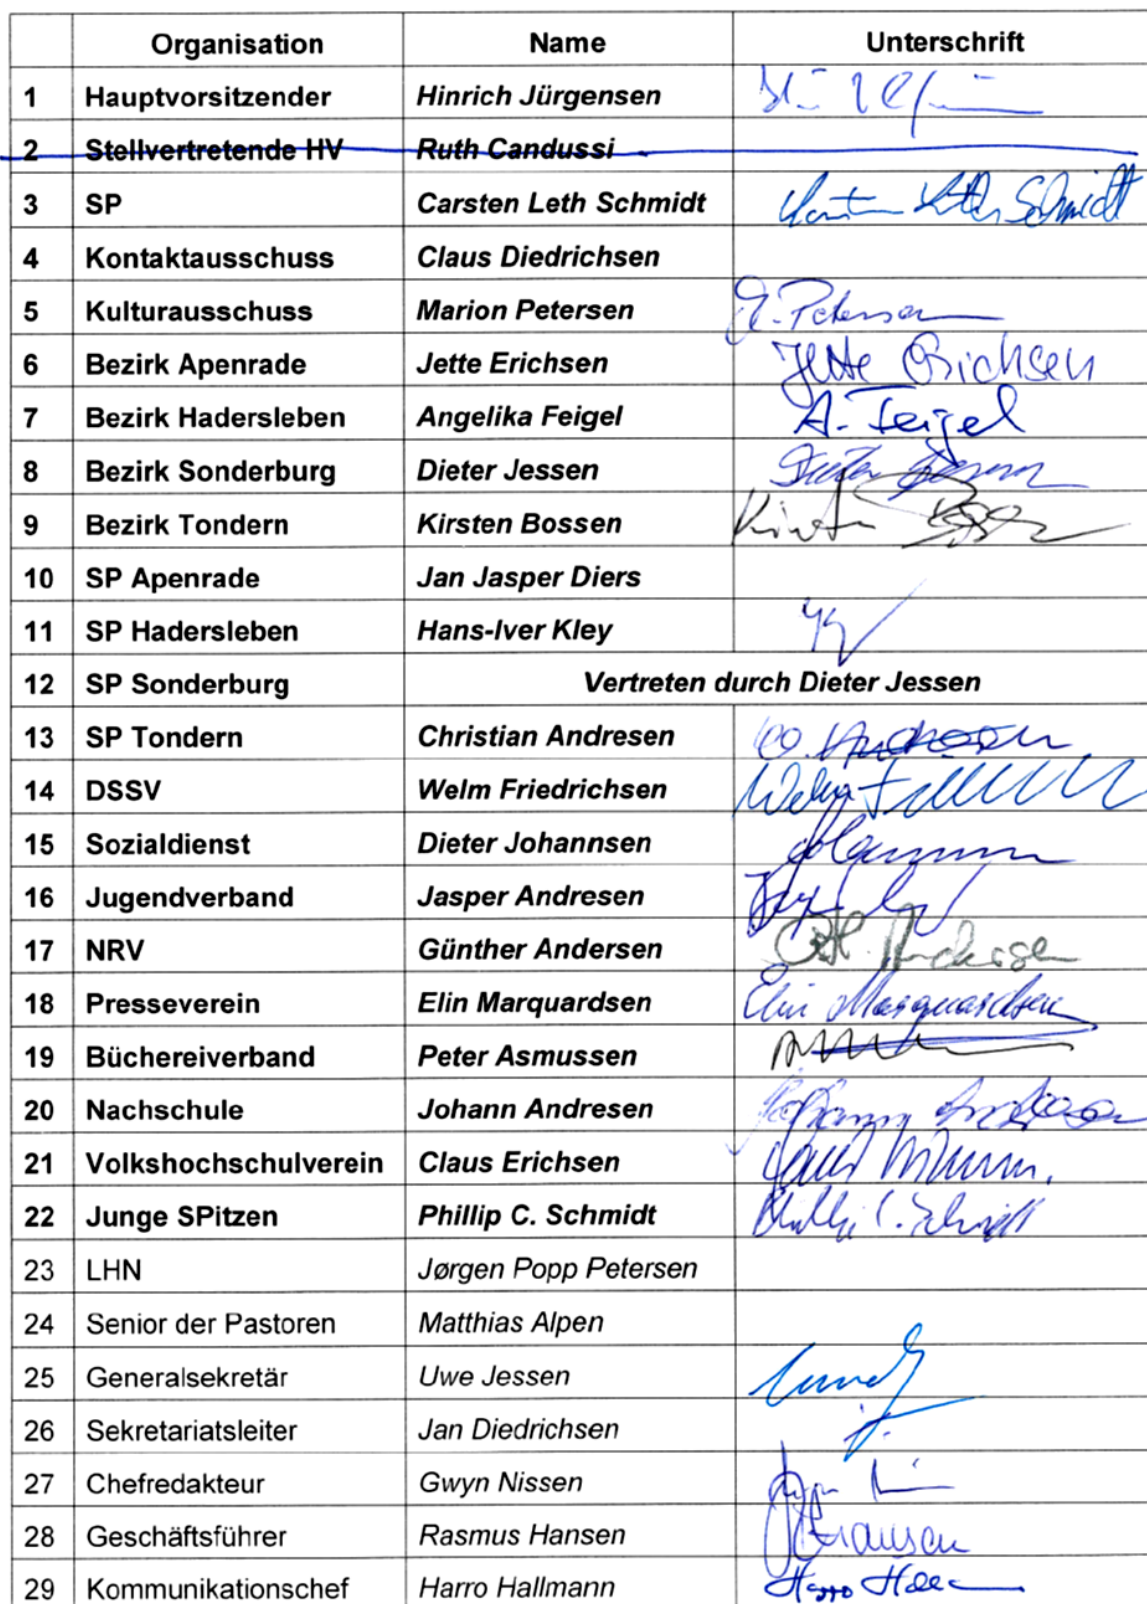 Organisation Name Unterschrift
1 Hauptvorsitzender Hinrich Jürgensen
2 Stellvertretende HV Ruth Candussi
3 SP Carsten Leth Schmidt Carsten Leth Schmidt
4 Kontaktausschuss Claus Diedrichsen
5 Kulturausschuss Marion Petersen M. Petersen
6 Bezirk Apenrade Jette Erichsen Jette Erichsen
7 Bezirk Hadersleben Angelika Feigel A. Feigel
8 Bezirk Sonderburg Dieter Jessen Dieter Jessen
9 Bezirk Tondern Kirsten Bossen Kirsten Bossen
10 SP Apenrade Jan Jasper Diers
11 SP Hadersleben Hans-Iver Kley
12 SP Sonderburg Vertreten durch Dieter Jessen
13 SP Tondern Christian Andresen Andresen
14 DSSV Welm Friedrichsen Welm
15 Sozialdienst Dieter Johannsen
16 Jugendverband Jasper Andresen
17 NRV Günther Andersen Andersen
18 Presseverein Elin Marquardsen Elin Marquardsen
19 Büchereiverband Peter Asmussen
20 Nachschule Johann Andresen Johann Andresen
21 Volkshochschulverein Claus Erichsen
22 Junge SPitzen Phillip C. Schmidt Phillip C. Schmidt
23 LHN Jørgen Popp Petersen
24 Senior der Pastoren Matthias Alpen
25 Generalsekretär Uwe Jessen
26 Sekretariatsleiter Jan Diedrichsen
27 Chefredakteur Gwyn Nissen
28 Geschäftsführer Rasmus Hansen Hansen
29 Kommunikationschef Harro Hallmann Harro